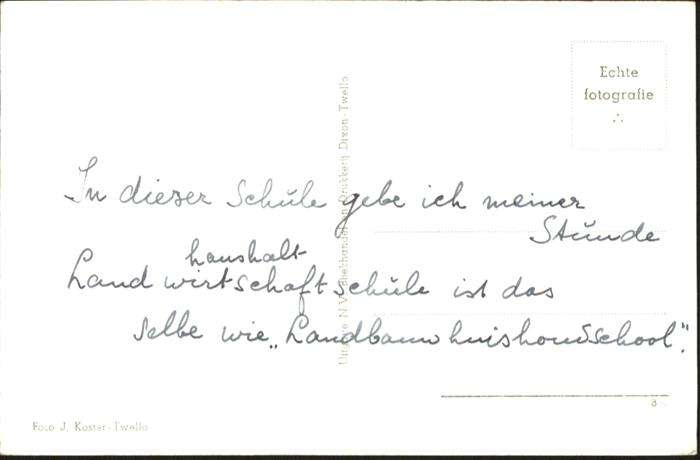 Echte
fotografie
In dieser Schule gebe ich meiner
Stunde
haushalt
Land wirtschaftschule ist das
selbe wie „Landbouw huishoudschool".
Uitgave N.V. Boekhandel en Drukkerij Dixon-Twello
Foto J. Koster-Twello